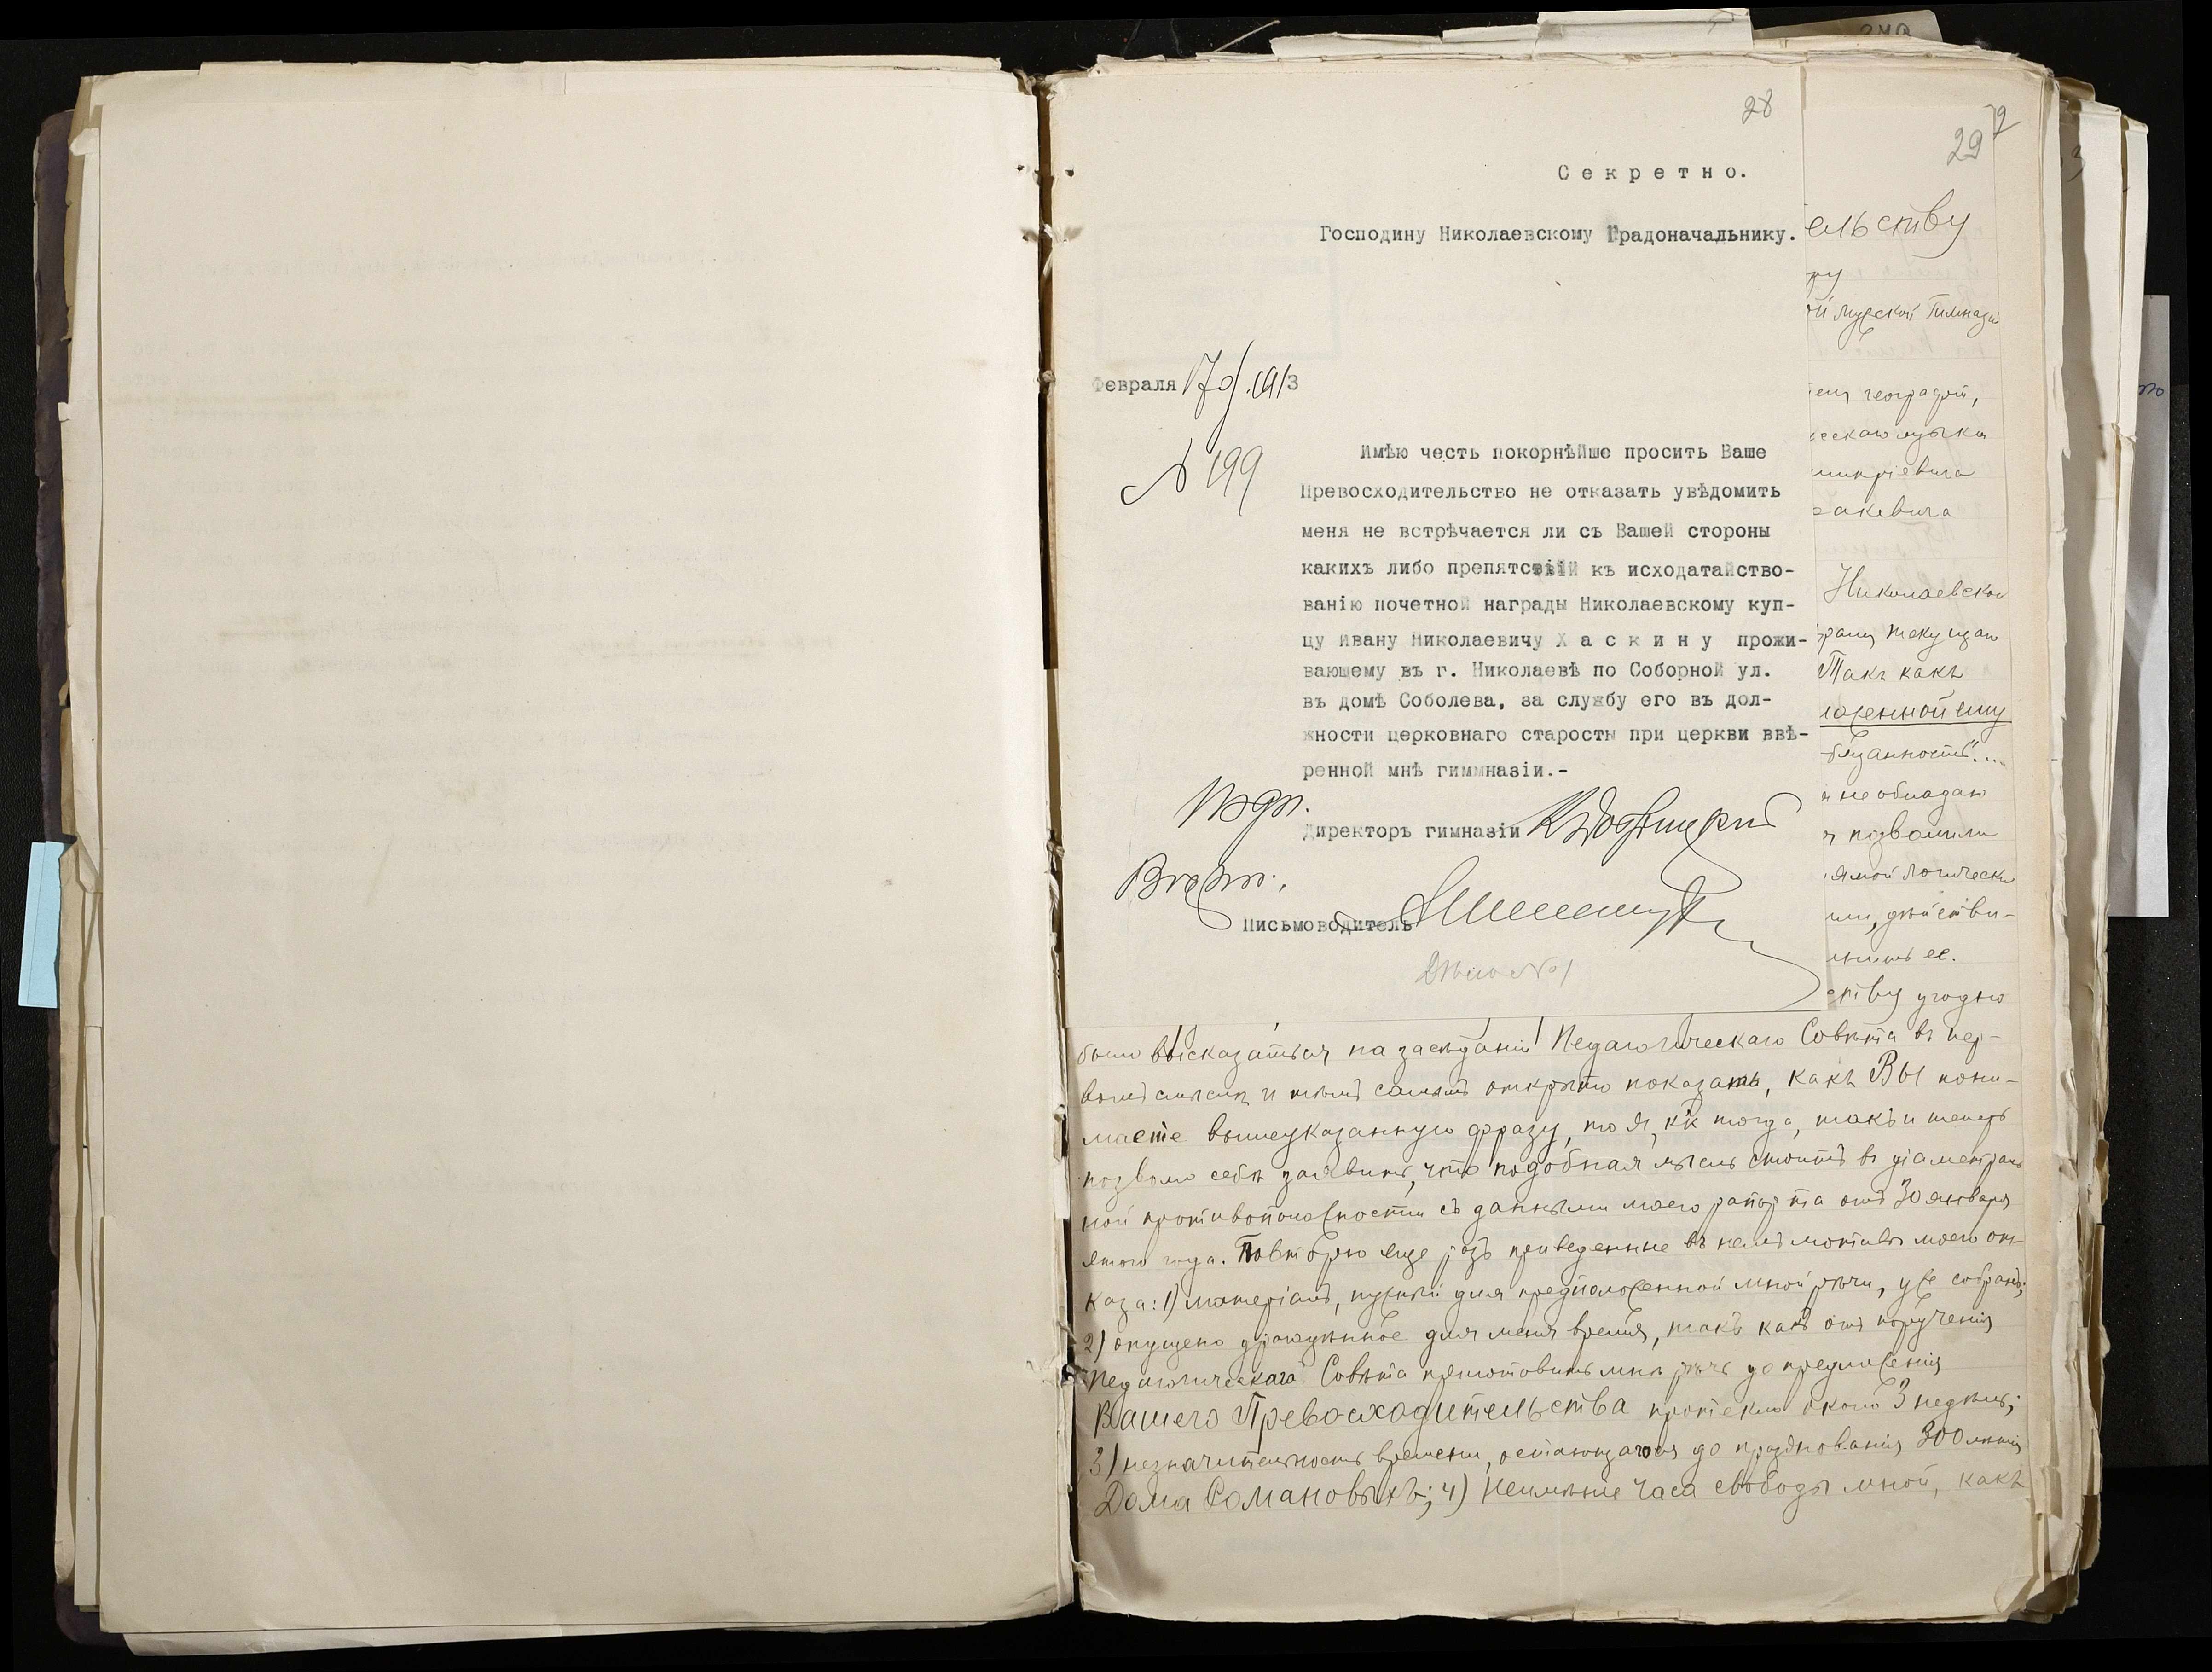 28
Секретно.
Господину Николаевскому Градоначальнику.
Февраля 17 д. 1913
№ 199
Имѣю честь покорнѣйше просить Ваше
Превосходительство не отказать увѣдомить
меня не встрѣчается ли съ Вашей стороны
какихъ либо препятствій къ исходатайство-
ванію почетной награды Николаевскому куп-
цу Ивану Николаевичу Хаскину прожи-
вающему въ г. Николаевѣ по Соборной ул.
въ домѣ Соболева, за службу его въ дол-
жности церковнаго старосты при церкви ввѣ-
ренной мнѣ гиммназіи.-
Директоръ гимназіи
Письмоводитель
Дѣло №1
29
ельству
ру
ой Мужской Гимназіи
еля географіи,
ескаго языка
Николаевской
текущаго
Такъ какъ
ложенной ему
бязанность"...
я не обладаю
и позволили
ямой логически
или, дѣйстви-
лнить ее.
ству угодно
было высказаться на засѣданіи Педагогическаго Совѣта въ пер-
вомъ смыслѣ и тѣмъ самымъ открыто показать, какъ Вы пони-
маете вышеуказанную фразу, то я, кк тогда, такъ и теперь
позволю себѣ заявить, что подобная мысль стоитъ въ діаметраль
ной противоположности съ данными моего рапорта отъ 30 января
этого года. Повторю еще разъ приведенные въ немъ мотивы моего от-
каза: 1) матеріалъ, нужный для предположенной мной рѣчи, уже собранъ;
2) опущено драгоцѣнное для меня время, такъ какъ отъ порученія
Педагогическаго Совѣта приготовить мнѣ рѣчь до предложенія
Вашего Превосходительства протекло около 3 недѣль;
3) незначительность времени, остающагося до празднованія 300лѣтія
Дома Романовыхъ; 4) неимѣніе часа свободы мной, какъ